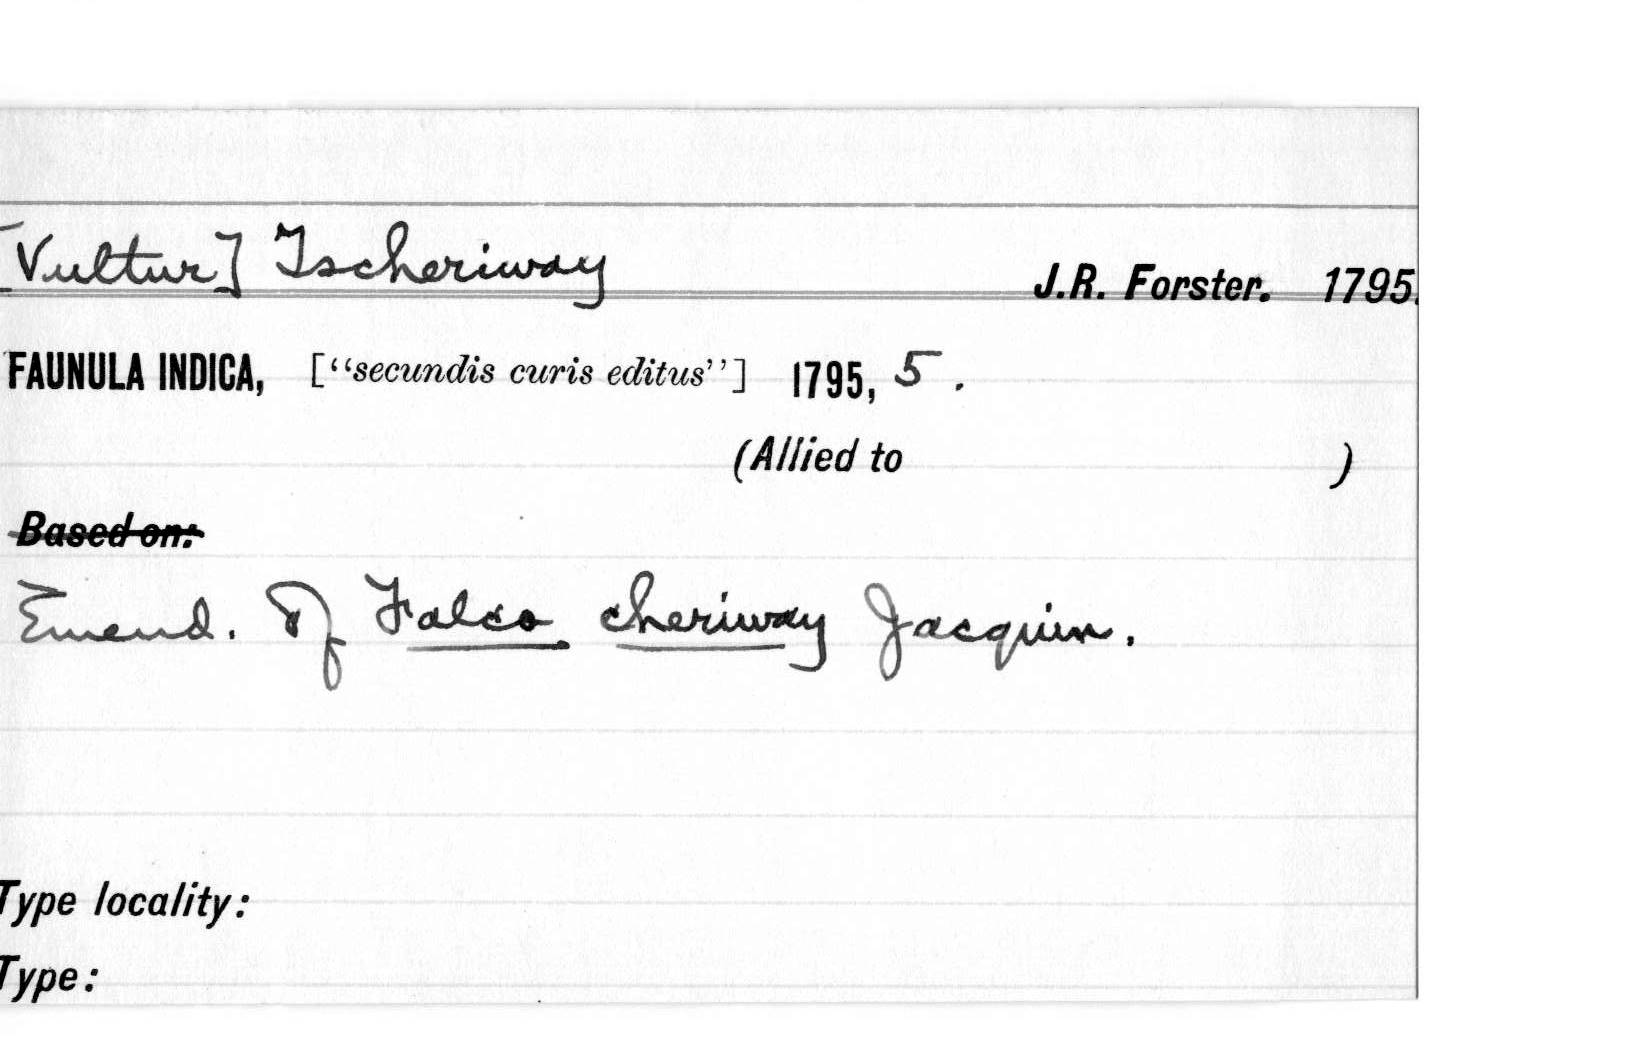 [Vultur] Tscheriway J.R. Forster. 1795.
FAUNULA INDICA, ["secundis curis editus"] 1795, 5.
(Allied to )
Based on:
Emend. of Falco cheriway Jacquin.
Type locality:
Type: